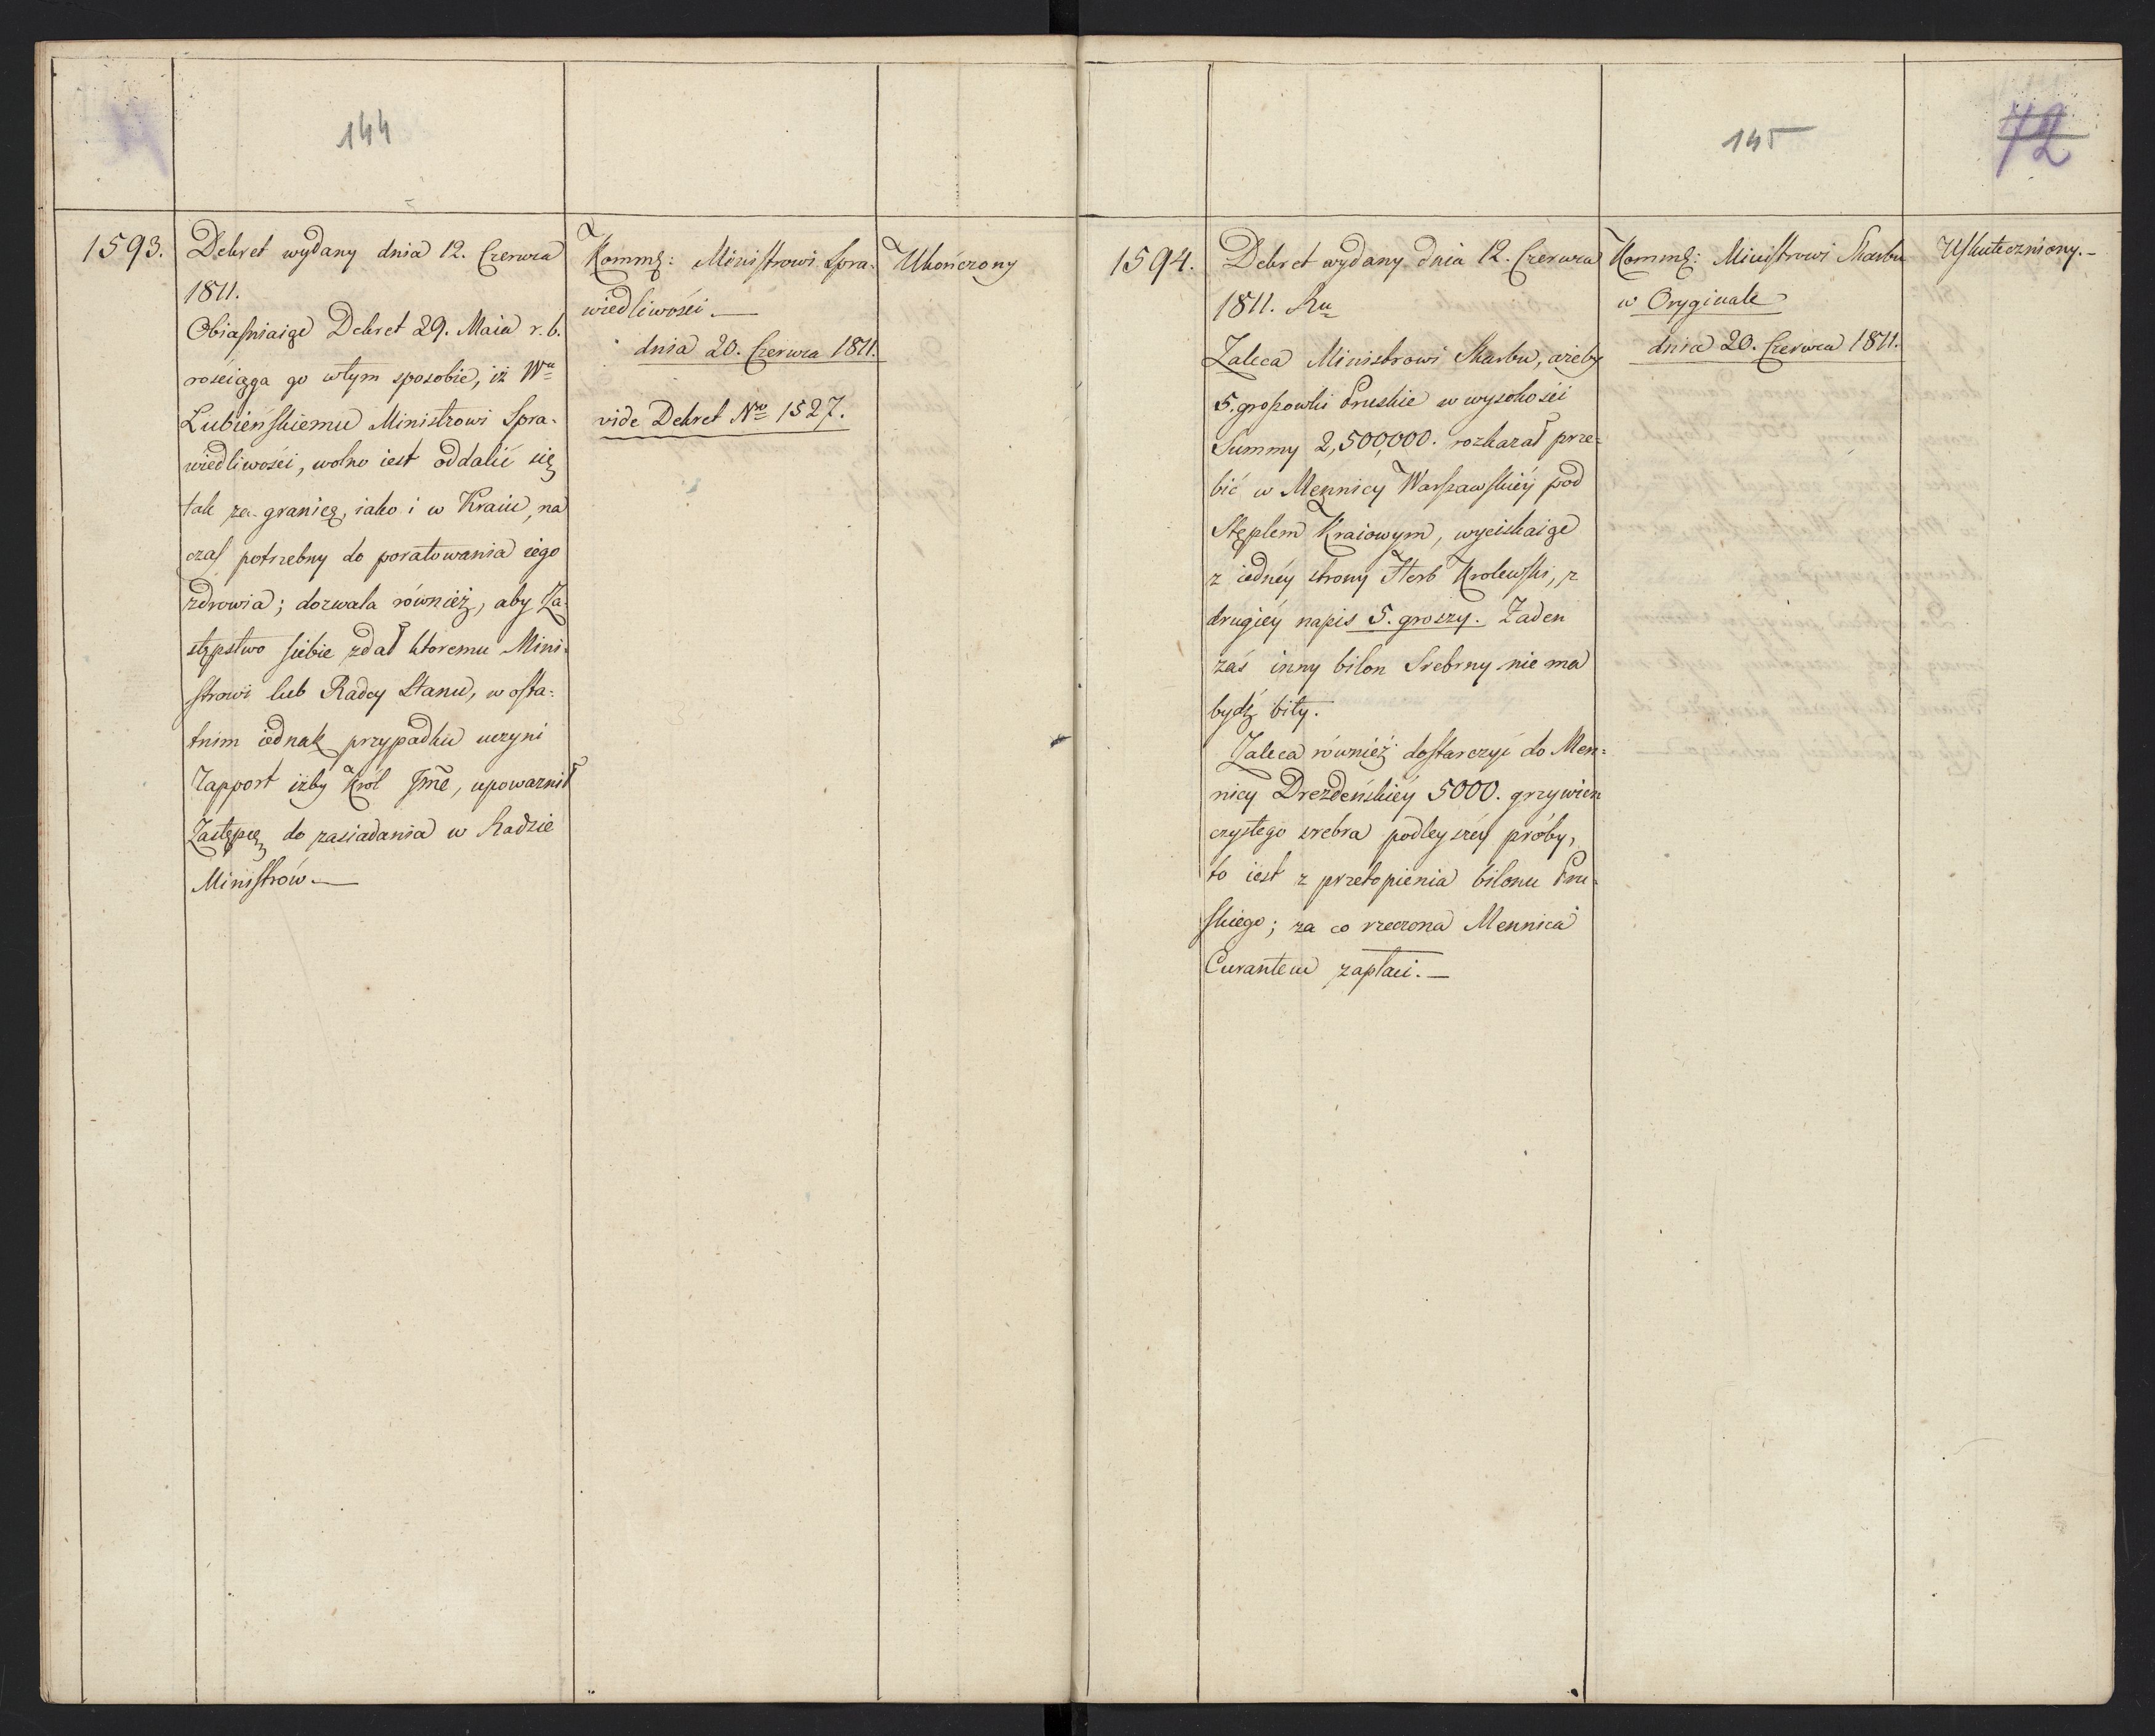 144
1593.
Dekret wydany dnia 12. Czerwca
1811.
Obiaśniaiąc Dekret 29. Maia r. b.
rościąga go w tym sposobie, iż Wu
Lubieńskiemu Ministrowi Spra-
wiedliwości, wolno iest oddalić się
tak za granicę, iako i w Kraiu, na
czas potrzebny do poratowania iego
zdrowia; dozwala również, aby Za-
stępstwo siebie zdał ktoremu Mini-
strowi lub Radcy Stanu, w osta-
tnim iednak przypadku uczyni
Rapport iżby Król Jmć, upoważnił
Zastępcę do zasiadania w Radzie
Ministrów.—
Kommę: Ministrowi Spra-
wiedliwości.—
dnia 20. Czerwca 1811.
vide Dekret Nro 1527.
Ukończony
145
72
1594.
Dekret wydany dnia 12. Czerwca
1811. Ru
Zaleca Ministrowi Skarbu, ażeby
5. groszowki Pruskie w wysokości
Summy 2,500,000. rozkazał prze-
bić w Mennicy Warszawskiéy pod
Stęplem Kraiowym, wyciskaiąc
z iednéy strony Herb Krolewski, z
drugiéy napis 5. groszy. Żaden
zaś inny bilon Srebrny nie ma
bydź bity.
Zaleca również dostarczyć do Men-
nicy Drezdeńskiéy 5000. grzywien
czystego srebra podleyszéy próby,
to iest z przetopienia bilonu Pru-
skiego; za co rzeczona Mennica
Curantem zapłaci.—
Kommę: Ministrowi Skarbu
w Oryginale
dnia 20. Czerwca 1811.
Uskuteczniony.—